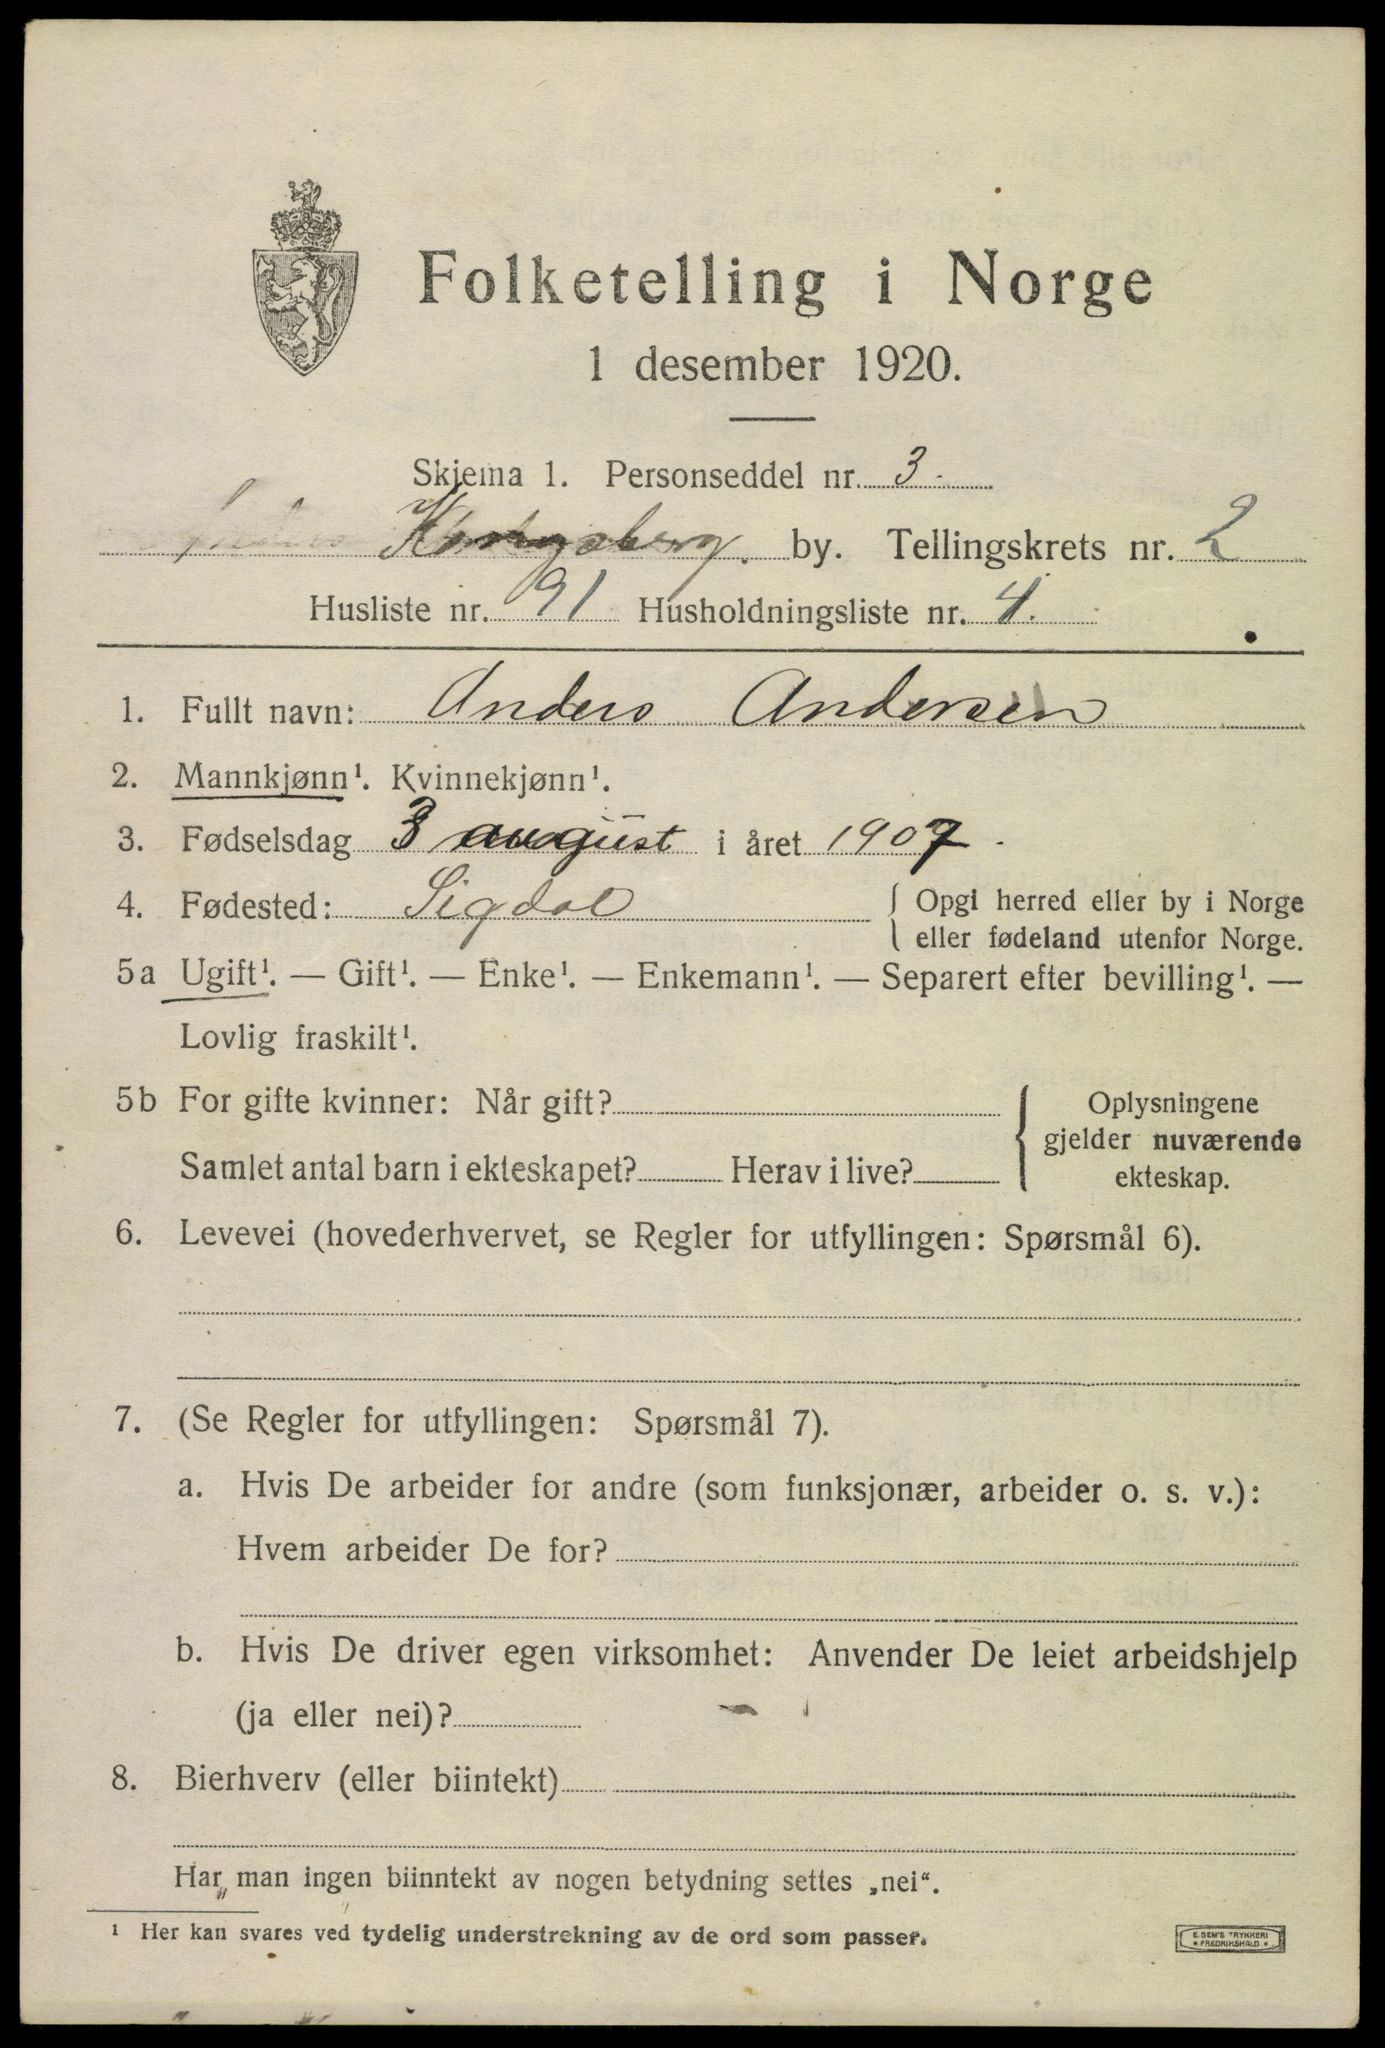 Folketelling i Norge
1 desember 1920.
Skjema 1. Personseddel nr. 3.
Kongsberg. by. Tellingskrets nr. 2
Husliste nr. 91 Husholdningsliste nr. 4.
1. Fullt navn: Anders Andersen
2. Mannkjønn¹. Kvinnekjønn¹.
3. Fødselsdag 3 august i året 1907.
4. Fødested: Sigdal { Opgi herred eller by i Norge
eller fødeland utenfor Norge.
5a Ugift¹. — Gift¹. — Enke¹. — Enkemann¹. — Separert efter bevilling¹. —
Lovlig fraskilt¹.
5b For gifte kvinner: Når gift?
Samlet antal barn i ekteskapet? Herav i live?
{ Oplysningene
gjelder nuværende
ekteskap.
6. Levevei (hovederhvervet, se Regler for utfyllingen: Spørsmål 6).
7. (Se Regler for utfyllingen: Spørsmål 7).
a. Hvis De arbeider for andre (som funksjonær, arbeider o. s. v.):
Hvem arbeider De for?
b. Hvis De driver egen virksomhet: Anvender De leiet arbeidshjelp
(ja eller nei)?
8. Bierhverv (eller biintekt)
Har man ingen biinntekt av nogen betydning settes „nei“.
¹ Her kan svares ved tydelig understrekning av de ord som passer.
E. SEM'S TRYKKERI
FREDRIKSHALD